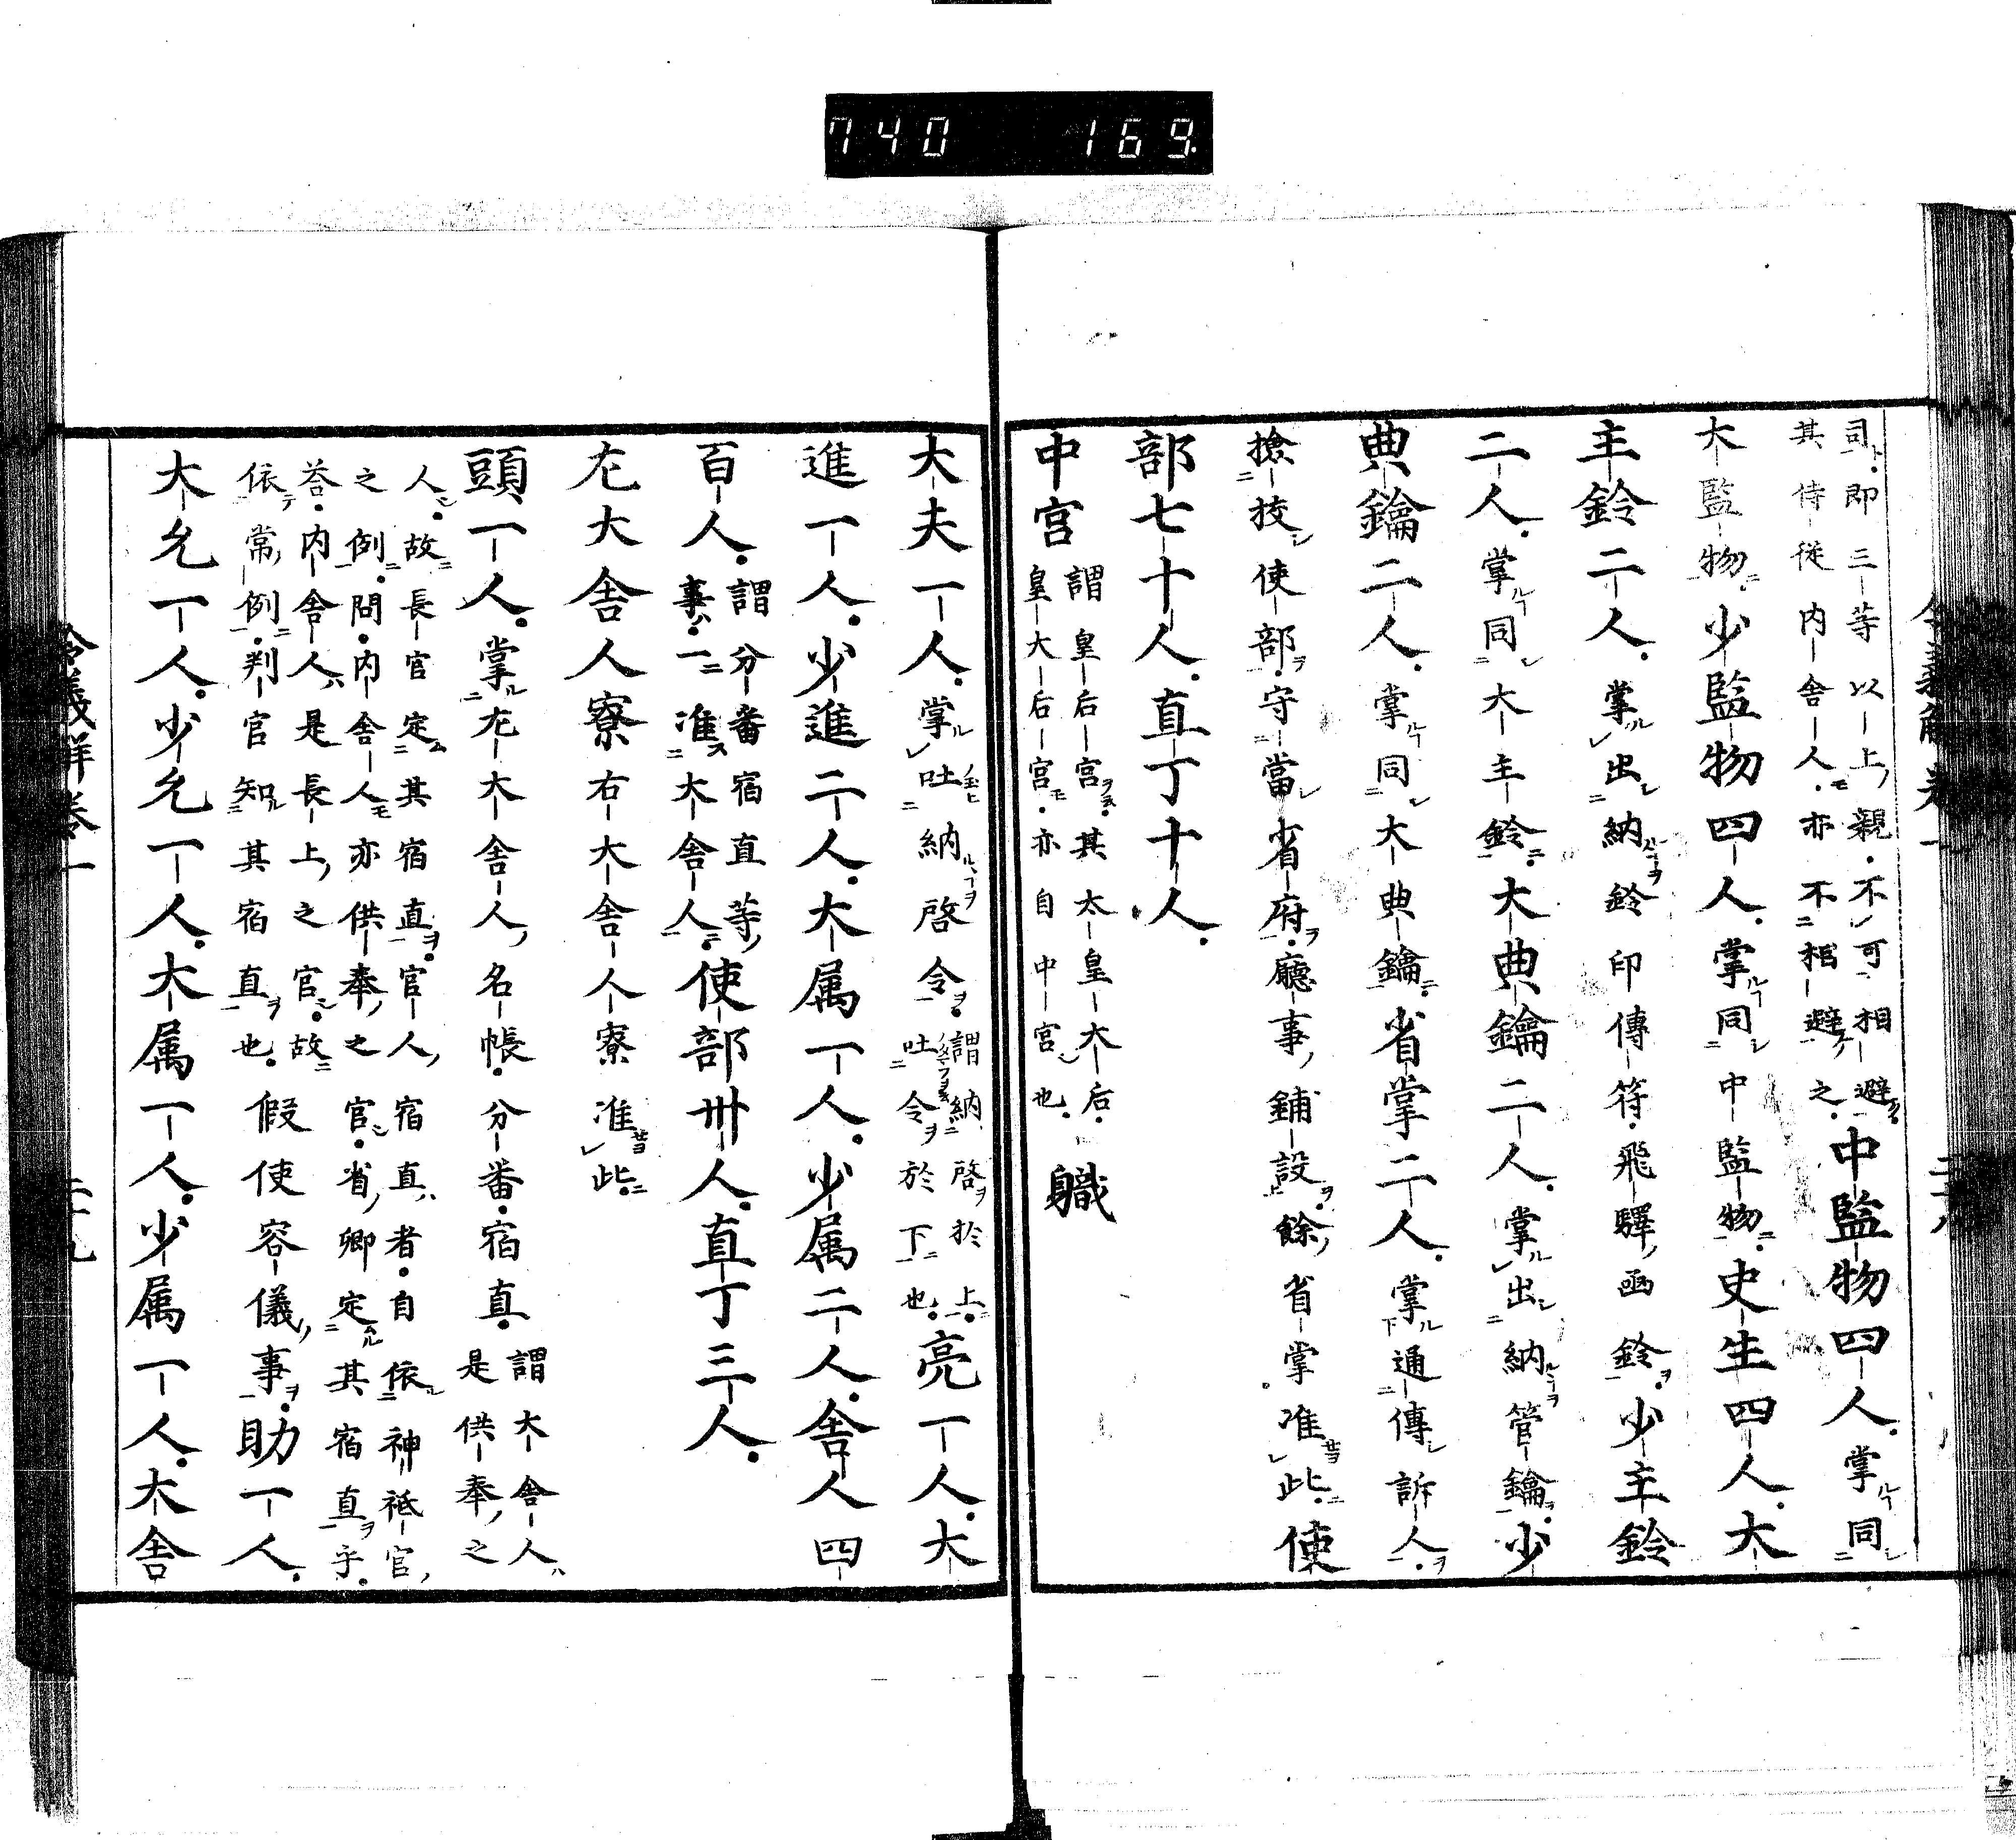 740 169
司即三等以上親不可相避
其侍從内舎人亦不相避之
中監物四人掌同
大監物少監物四人掌同中監物史生四人大
主鈴二人掌出納鈴印傳符飛驛函鈴少主鈴
二人掌同大主鈴大典鑰二人掌出納管鑰少
典鑰二人掌同大典鑰省掌二人掌通傳訴人
撿挍使部守當省府廳事鋪設餘省掌准此使
部七十人直丁十人
中宮
謂皇后宮其太皇大后
皇大后宮亦自中宮也
職
大夫一人掌吐納啓令
謂納啓於上
吐令於下也
亮一人大
進一人少進二人大属一人少属二人舎人四
百人
謂分番宿直等
事一准大舎人
使部卅人直丁三人
左大舎人寮右大舎人寮准此
頭一人掌左大舎人名帳分番宿直
謂大舎人
是供奉之
人故長官定其宿直官人宿直者自依神祇官
之例問内舎人亦供奉之官省卿定其宿直乎
荅内舎人是長上之官故
依常例判官知其宿直也
假使容儀事助一人
大允一人少允一人大属一人少属一人大舎
令義解卷一